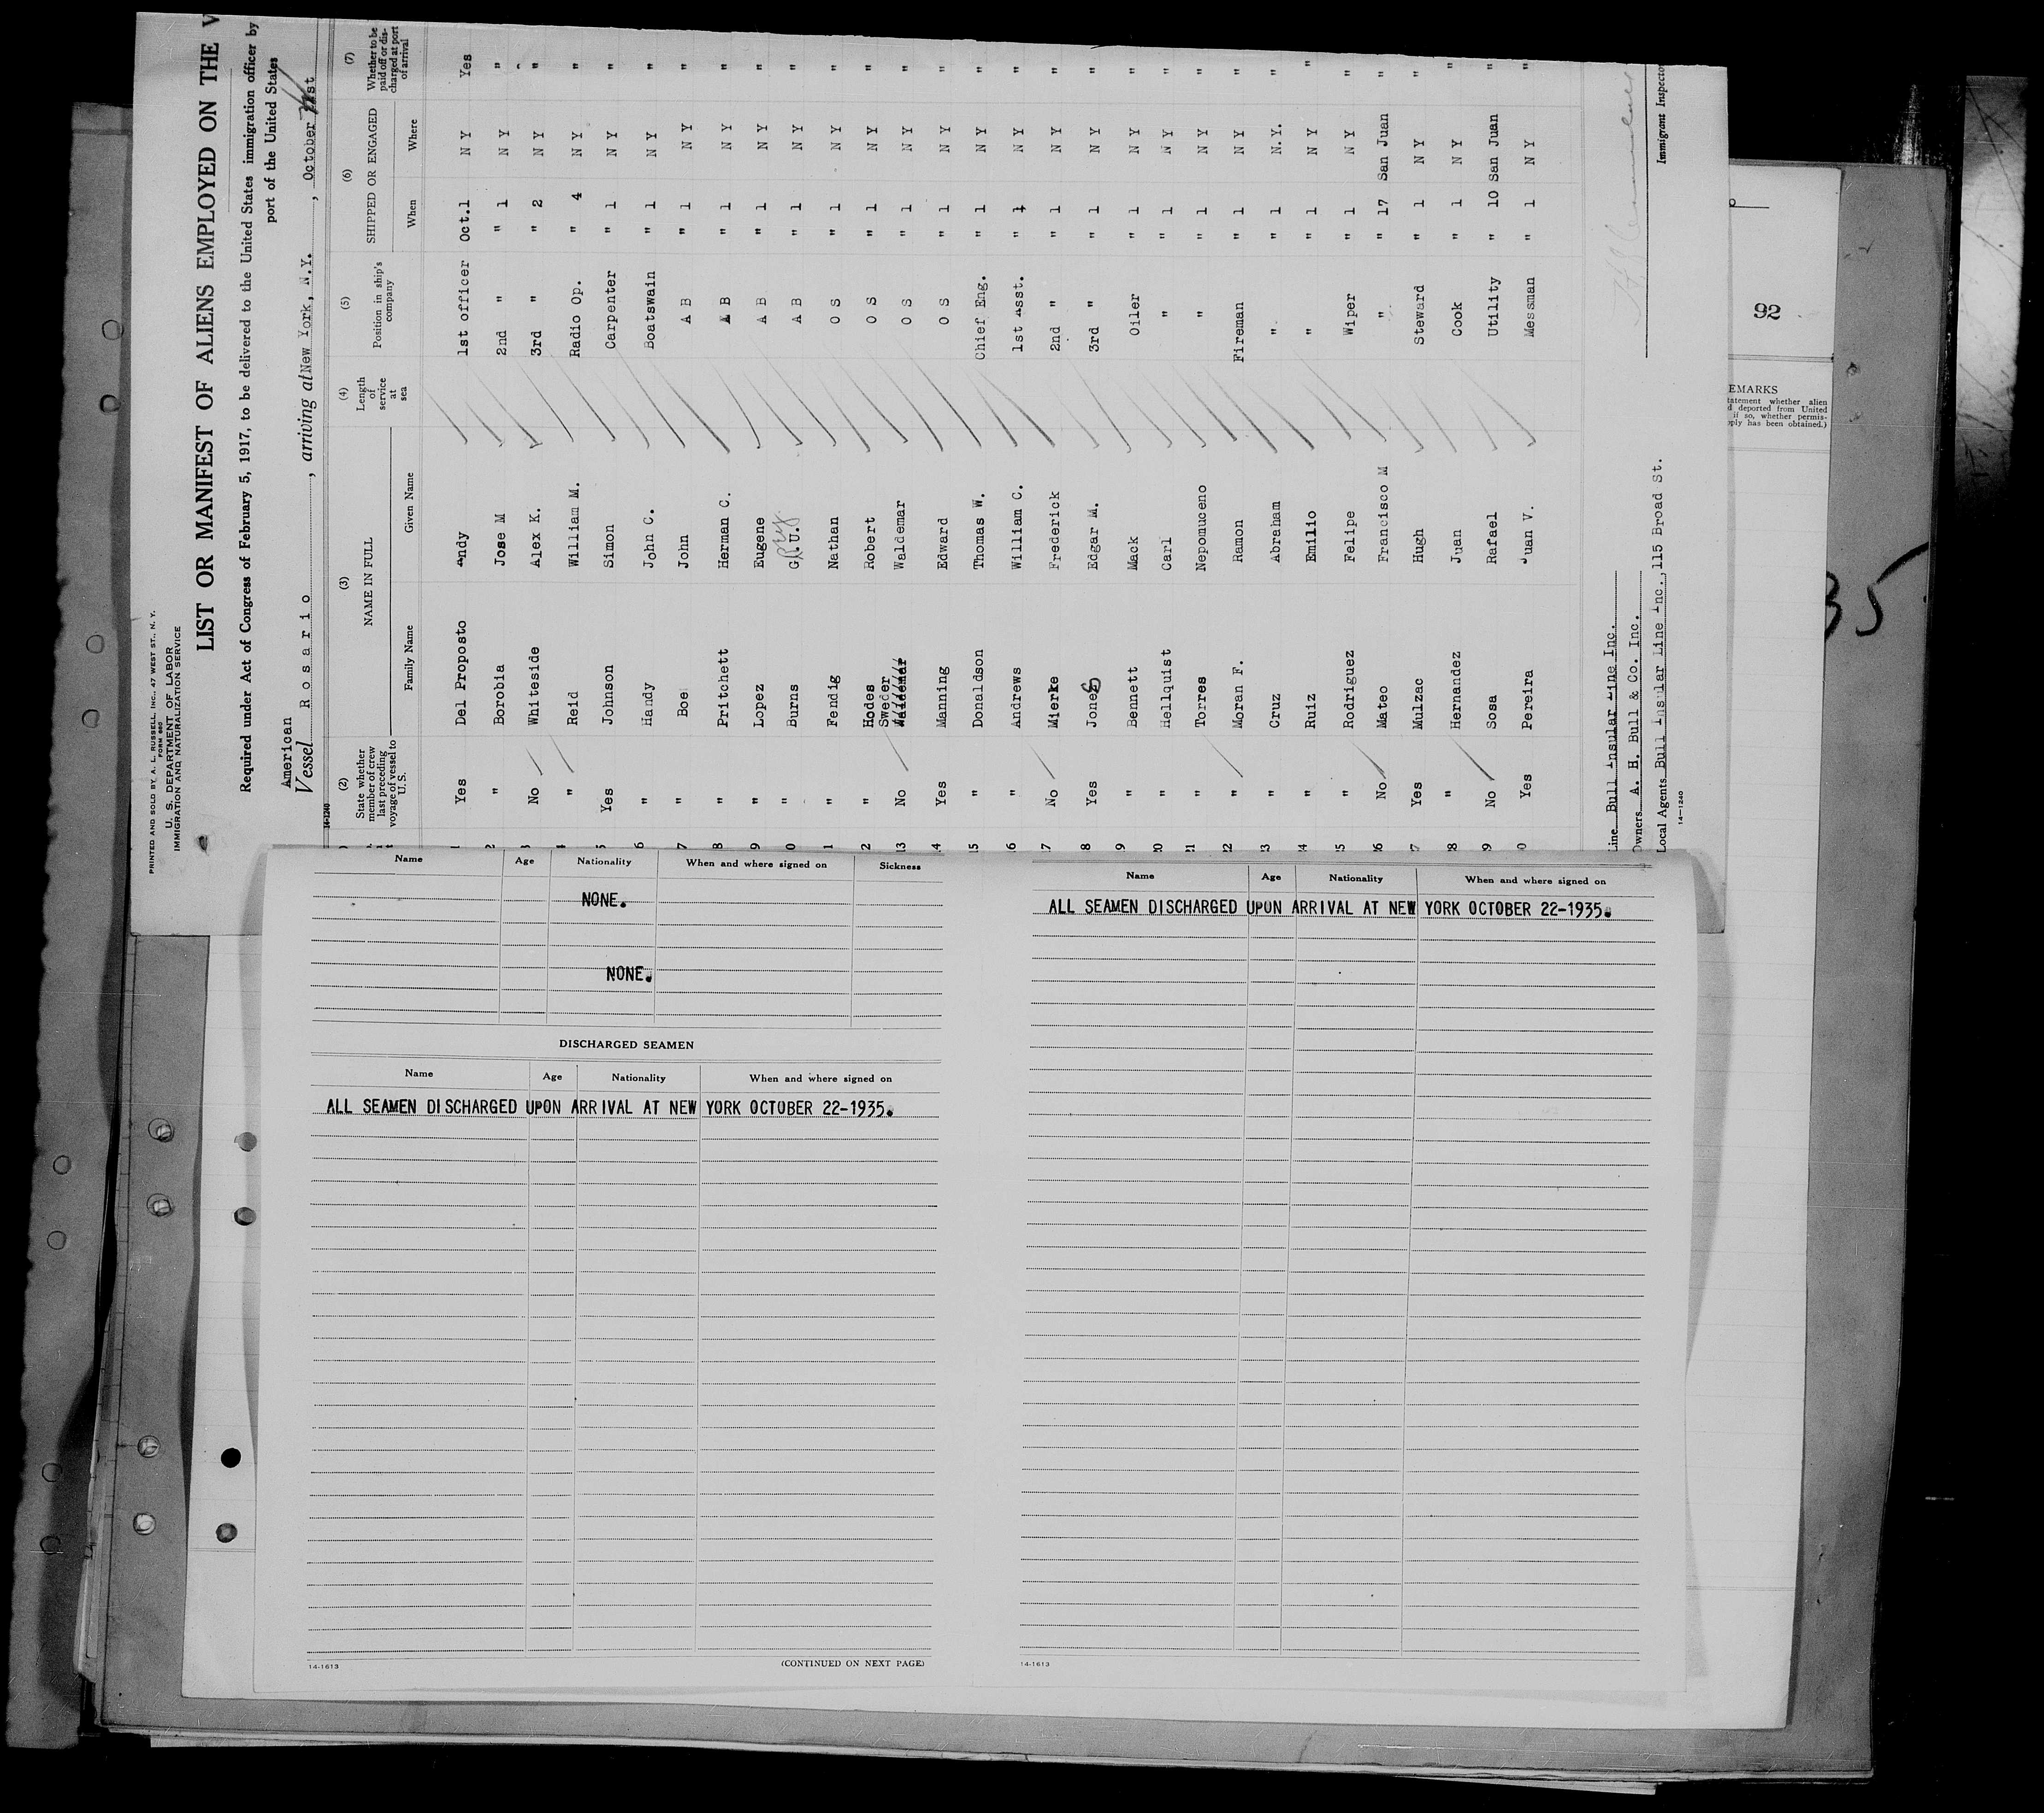 PRINTED AND SOLD BY A. L. RUSSELL, INC., 47 WEST ST., N. Y.
FORM 680
U. S. DEPARTMENT OF LABOR
IMMIGRATION AND NATURALIZATION SERVICE
LIST OR MANIFEST OF ALIENS EMPLOYED ON THE
Required under Act of Congress of February 5, 1917, to be delivered to the United States immigration officer by
port of the United States
American
Vessel Rosario, arriving at New York, N.Y., October
14-1240
(2) (3) (4) (5) (6) (7)
State whether member of crew last preceding voyage of vessel to U.S. NAME IN FULL Length of service at sea Position in ship's company SHIPPED OR ENGAGED Whether to be paid off or discharged at port of arrival
Family Name Given Name When Where
1 Yes Del Proposto Andy 1st officer Oct.1 N Y Yes
2 " Borobia Jose M 2nd " " 1 N Y "
3 No Whiteside Alex K. 3rd " " 2 N Y "
4 " Reid William M. Radio Op. " 4 N Y "
5 Yes Johnson Simon Carpenter " 1 N Y "
6 " Handy John C. Boatswain " 1 N Y "
7 " Boe John A B " 1 N Y "
8 " Pritchett Herman C. A B " 1 N Y "
9 " Lopez Eugene A B " 1 N Y "
0 " Burns G.U. Guy A B " 1 N Y "
1 " Fendig Nathan O S " 1 N Y "
2 " Hodes Robert O S " 1 N Y "
13 No Sweder Waldemar Waldemar O S " 1 N Y "
14 Yes Manning Edward O S " 1 N Y "
15 " Donaldson Thomas W. Chief Eng. " 1 N Y "
16 " Andrews William C. 1st Asst. " 1 N Y "
17 No Mierke Frederick 2nd " " 1 N Y "
8 Yes Jones Edgar M. 3rd " " 1 N Y "
9 " Bennett Mack Oiler " 1 N Y "
20 " Hellquist Carl " " 1 N Y "
21 " Torres Nepomuceno " " 1 N Y "
22 " Moran F. Ramon Fireman " 1 N Y "
23 " Cruz Abraham " " 1 N.Y. "
24 " Ruiz Emilio " " 1 N Y "
25 " Rodriguez Felipe Wiper " 1 N Y "
26 No Mateo Francisco M " " 17 San Juan "
27 Yes Mulzac Hugh Steward " 1 N Y "
28 " Hernandez Juan Cook " 1 N Y "
29 No Sosa Rafael Utility " 10 San Juan "
0 Yes Pereira Juan V. Messman " 1 N Y "
Line Bull Insular Line Inc.
Owners A. H. Bull & Co. Inc.
Local Agents Bull Insular Line Inc., 115 Broad St.
14-1240
Immigrant Inspector
92
EMARKS
tatement whether alien
d deported from United
if so, whether permis-
pply has been obtained.)
35
Name Age Nationality When and where signed on Sickness
NONE.
NONE.
DISCHARGED SEAMEN
Name Age Nationality When and where signed on
ALL SEAMEN DISCHARGED UPON ARRIVAL AT NEW YORK OCTOBER 22-1935.
14-1613
(CONTINUED ON NEXT PAGE)
Name Age Nationality When and where signed on
ALL SEAMEN DISCHARGED UPON ARRIVAL AT NEW YORK OCTOBER 22-1935.
14-1613